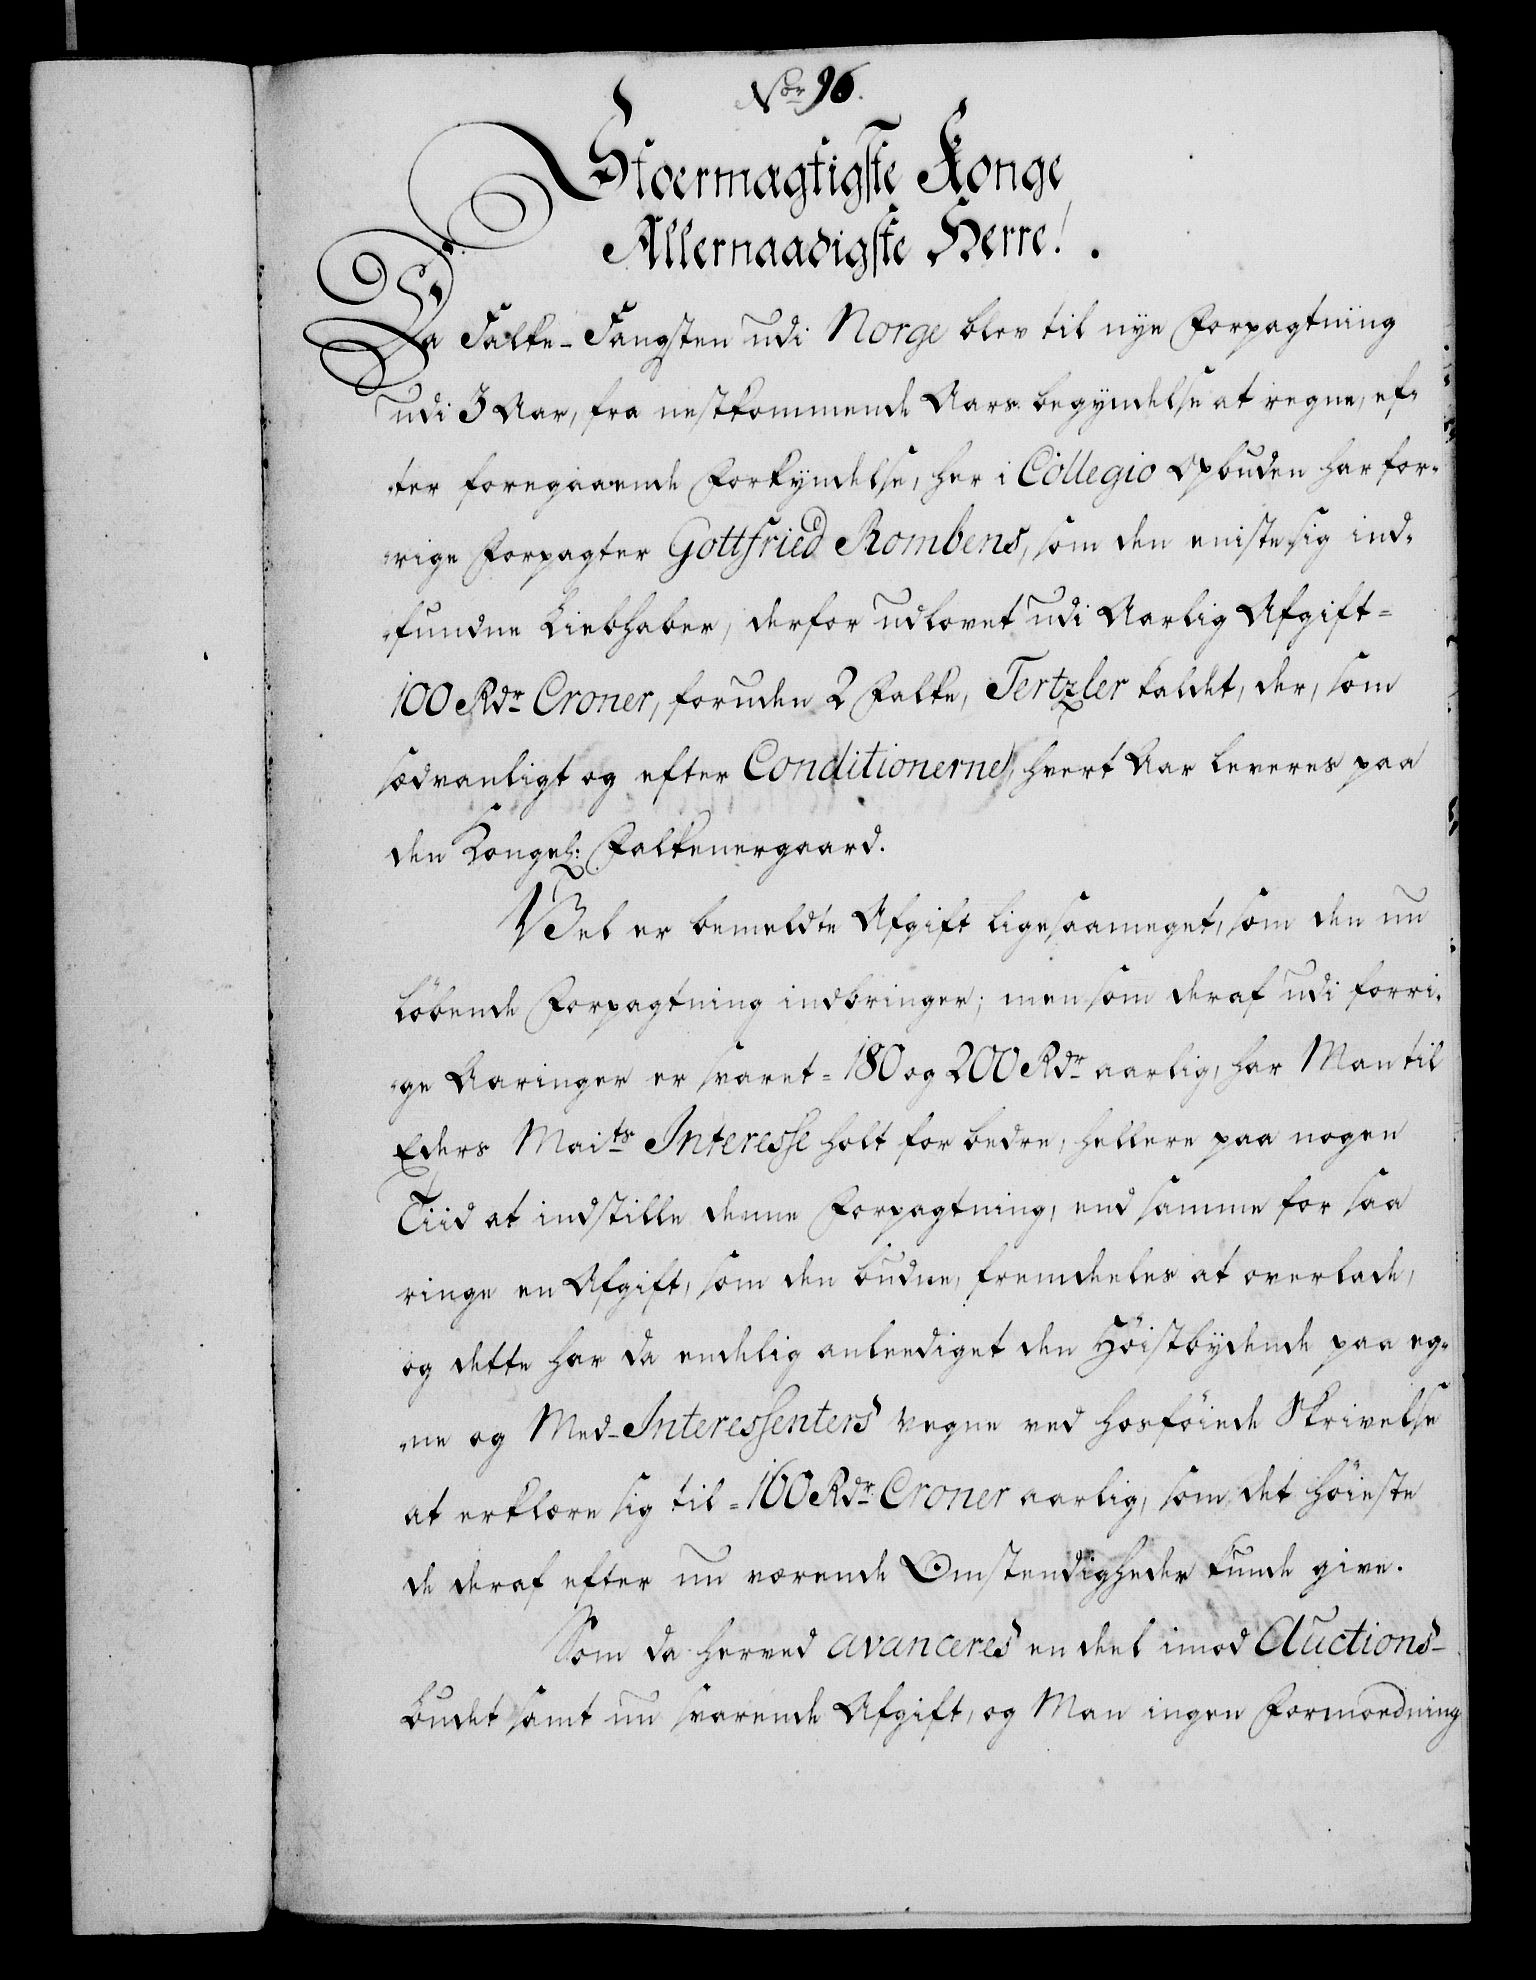 Nor 96.
Stoermægtigste Konge
Allernaadigste Herre!
Da Falke-Fangsten udi Norge blev til nye Forpagtning
udi 3 Aar, fra nestkommende Aars begyndelse at regne, ef-
ter foregaaende Forkyndelse, her i Collegio Opbuden har for-
rige Forpagter Gottfried Rombens, som den eniste sig ind-
fundne Liebhaber, derfor udlovet udi Aarlig Afgift =
100 Rdr Croner, foruden 2 Falke, Tertzler kaldet, der, som
sædvanligt og efter Conditionerne, hvert Aar leveres paa
den Kongel: Falkenergaard.
Vel er bemeldte Afgift ligesaameget, som den nu
løbende Forpagtning indbringer; men som deraf udi forri-
ge Aaringer er svaret = 180 og 200 Rdr aarlig, har Man til
Eders Maits Interesse holt for bedre, hellere paa nogen
Tiid at indstille denne Forpagtning, end samme for saa
ringe en Afgift, som den budne, fremdeeles at overlade,
og dette har da endelig anleediget den Høistbydende paa eg-
ne og Med-Interessenters vegne ved hosføiede Skrivelse
at erklære sig til = 160 Rdr Croner aarlig, som det høieste
de deraf efter nu værende Omstendigheder kunde give.
Som da herved avanceres en deel imod Auctions-
budet samt nu svarende Afgift, og Man ingen Formordning